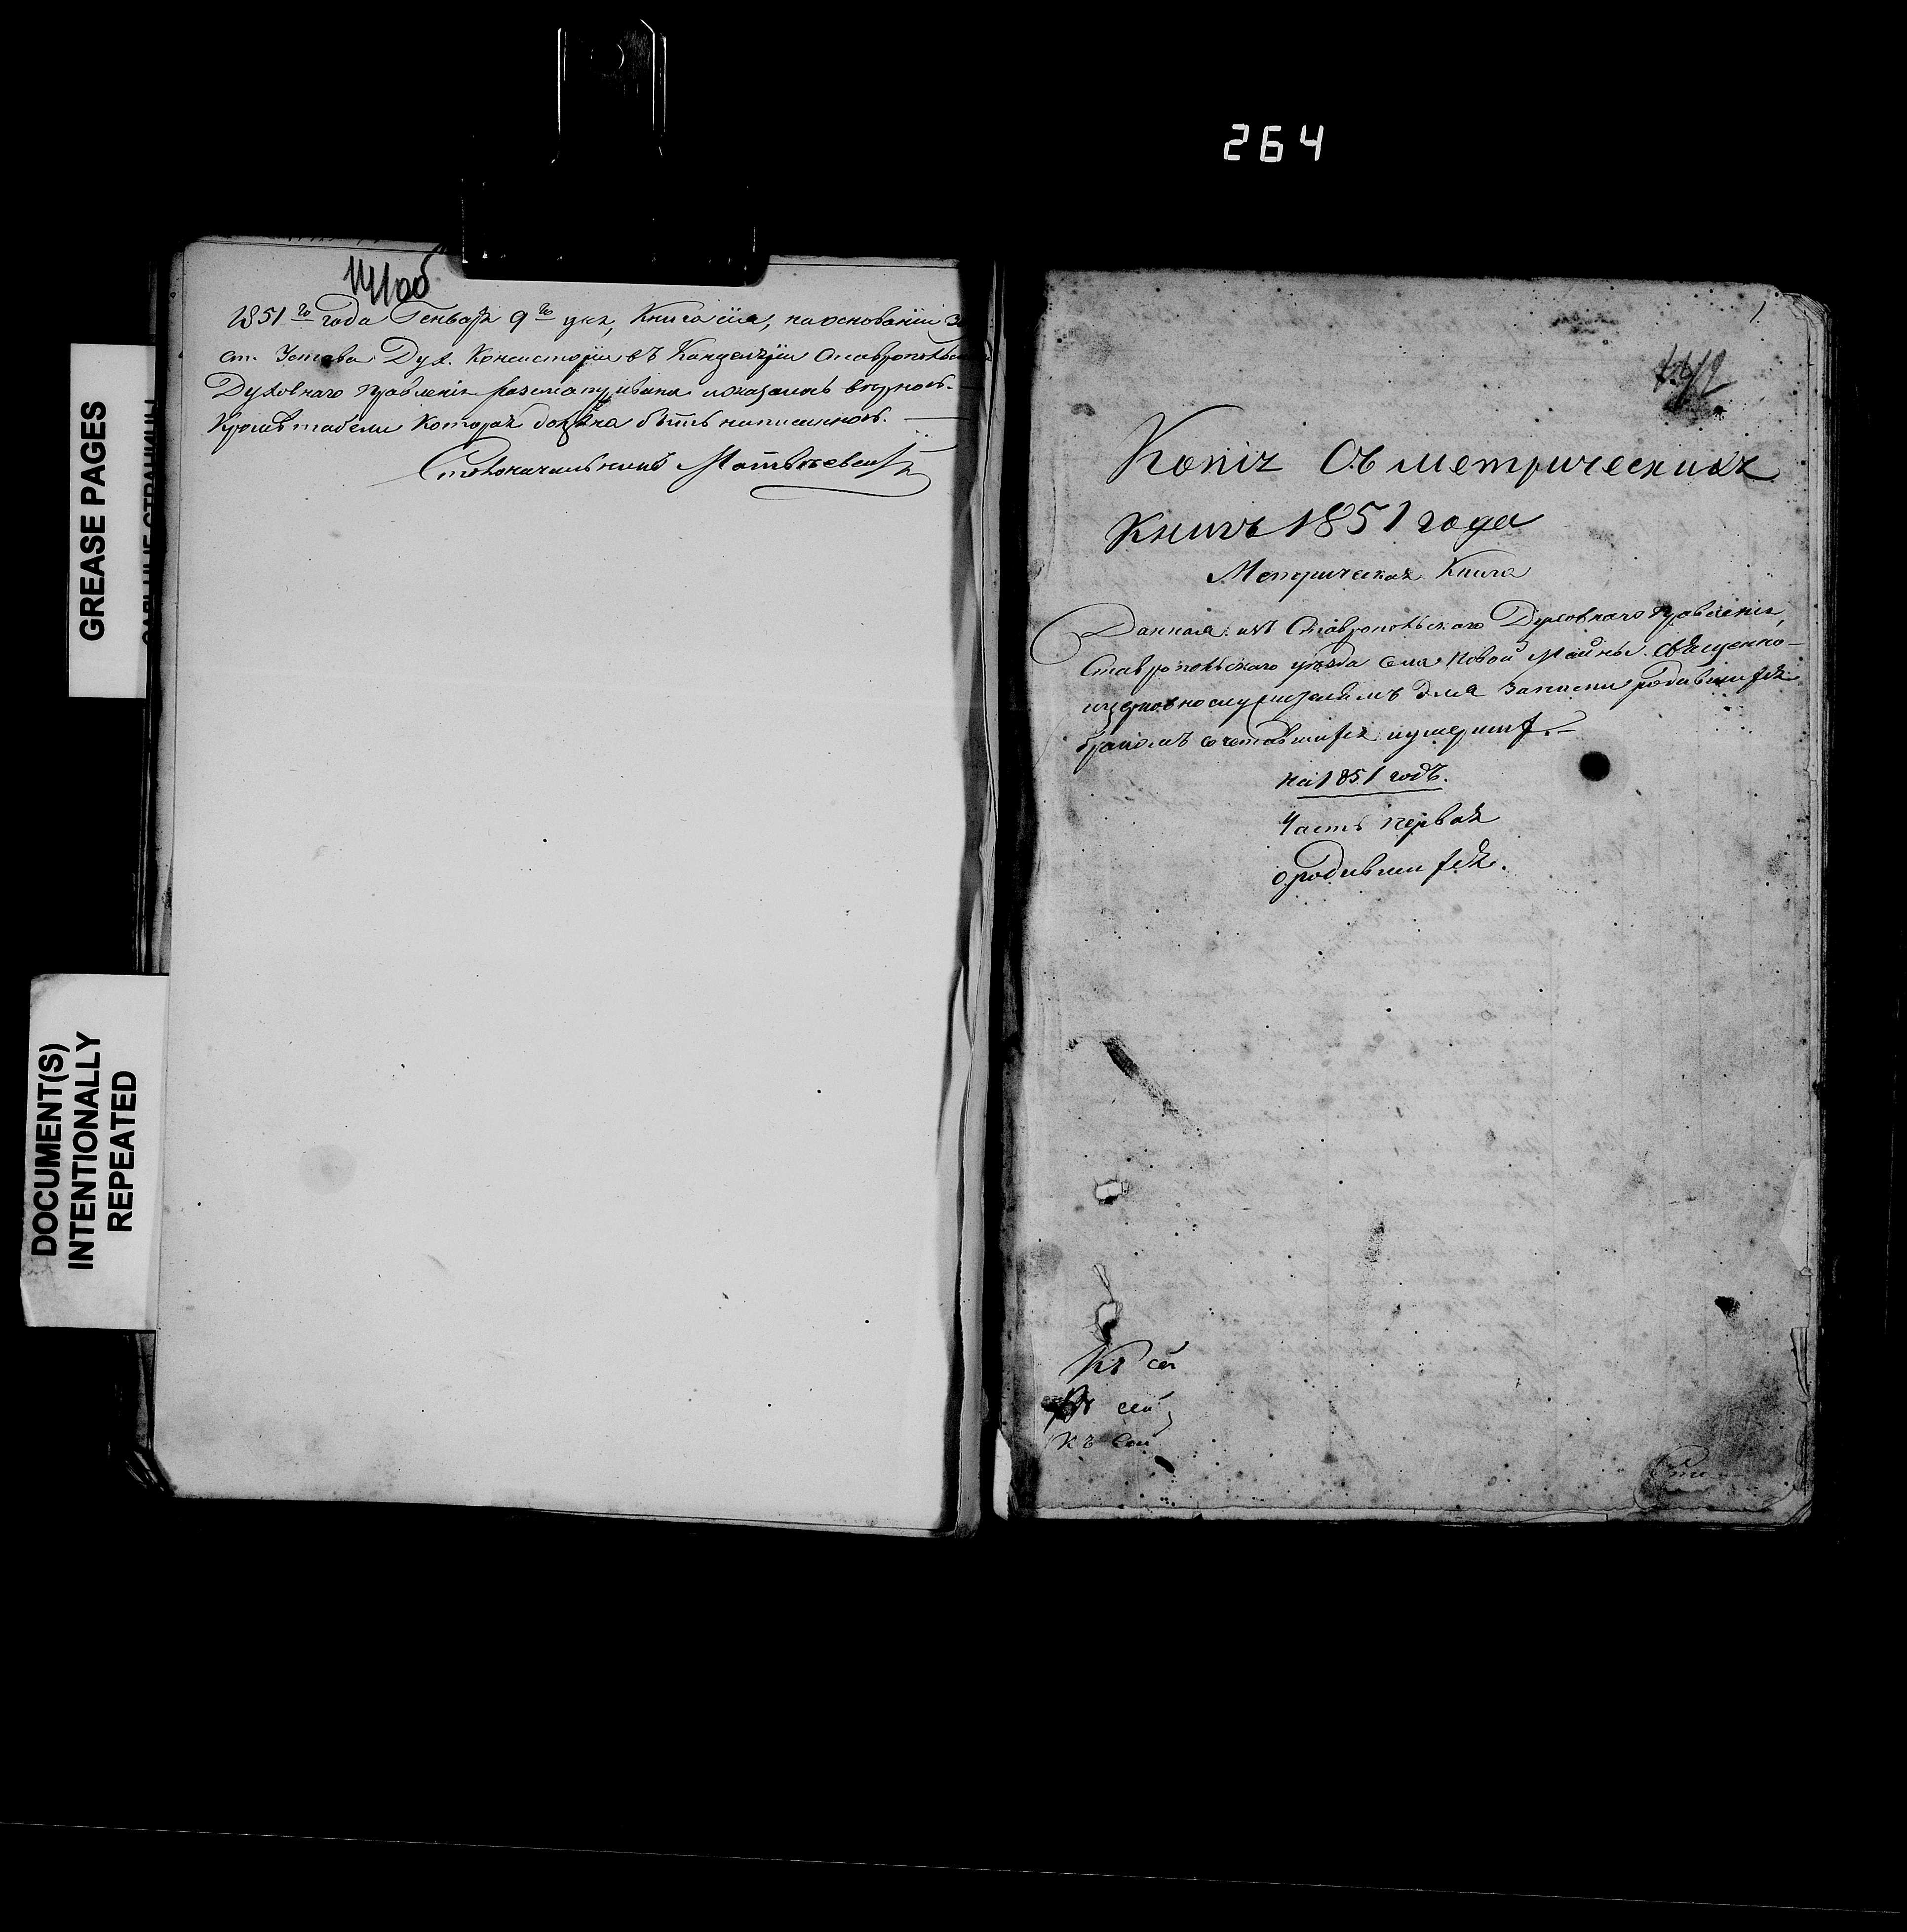 264
GREASE PAGES
DOCUMENT(S)
INTENTIONALLY
REPEATED
1851го года Генваря 9го дня, Книга сія, на основаніи
ст. Устава Дух. Консисторіи въ Канцеляріи Ставропольска
Духовнаго Правленія разсматривана и оказалась верною.
Кромѣ табели которая должна быть написанною.
Столоначальникъ
1
Копія Съ метрическихъ
Книгъ 1851 года
Метрическая Книга
Данная изъ Ставропольскаго Духовнаго Правленія,
Ставропольскаго уѣзда села Новой Майны Священно-
ицерковнослужителямъ для записки родившихся
бракомъ сочетавшихся и умерших.
на 1851 годъ.
Часть первая
о родившихся.
Къ сей
сей
Къ сей